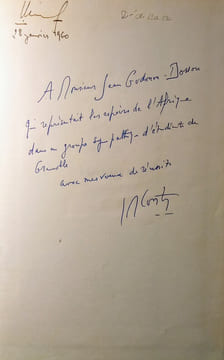 28 janvier 1960
A Monsieur Jean Godonou-Dossou
qui représentait les espoirs de l'Afrique
dans un groupe sympathique d'étudiants de
Grenoble
avec mes voeux de réussite